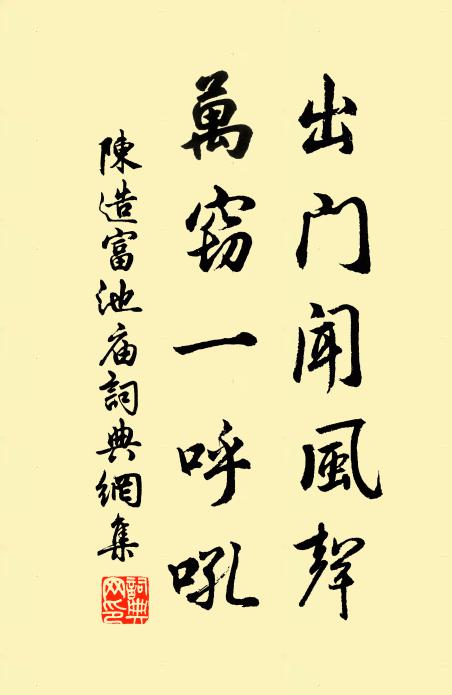 出门闻風聲
萬竅一呼吼
陳造富池庙詞典網集
詞典网印